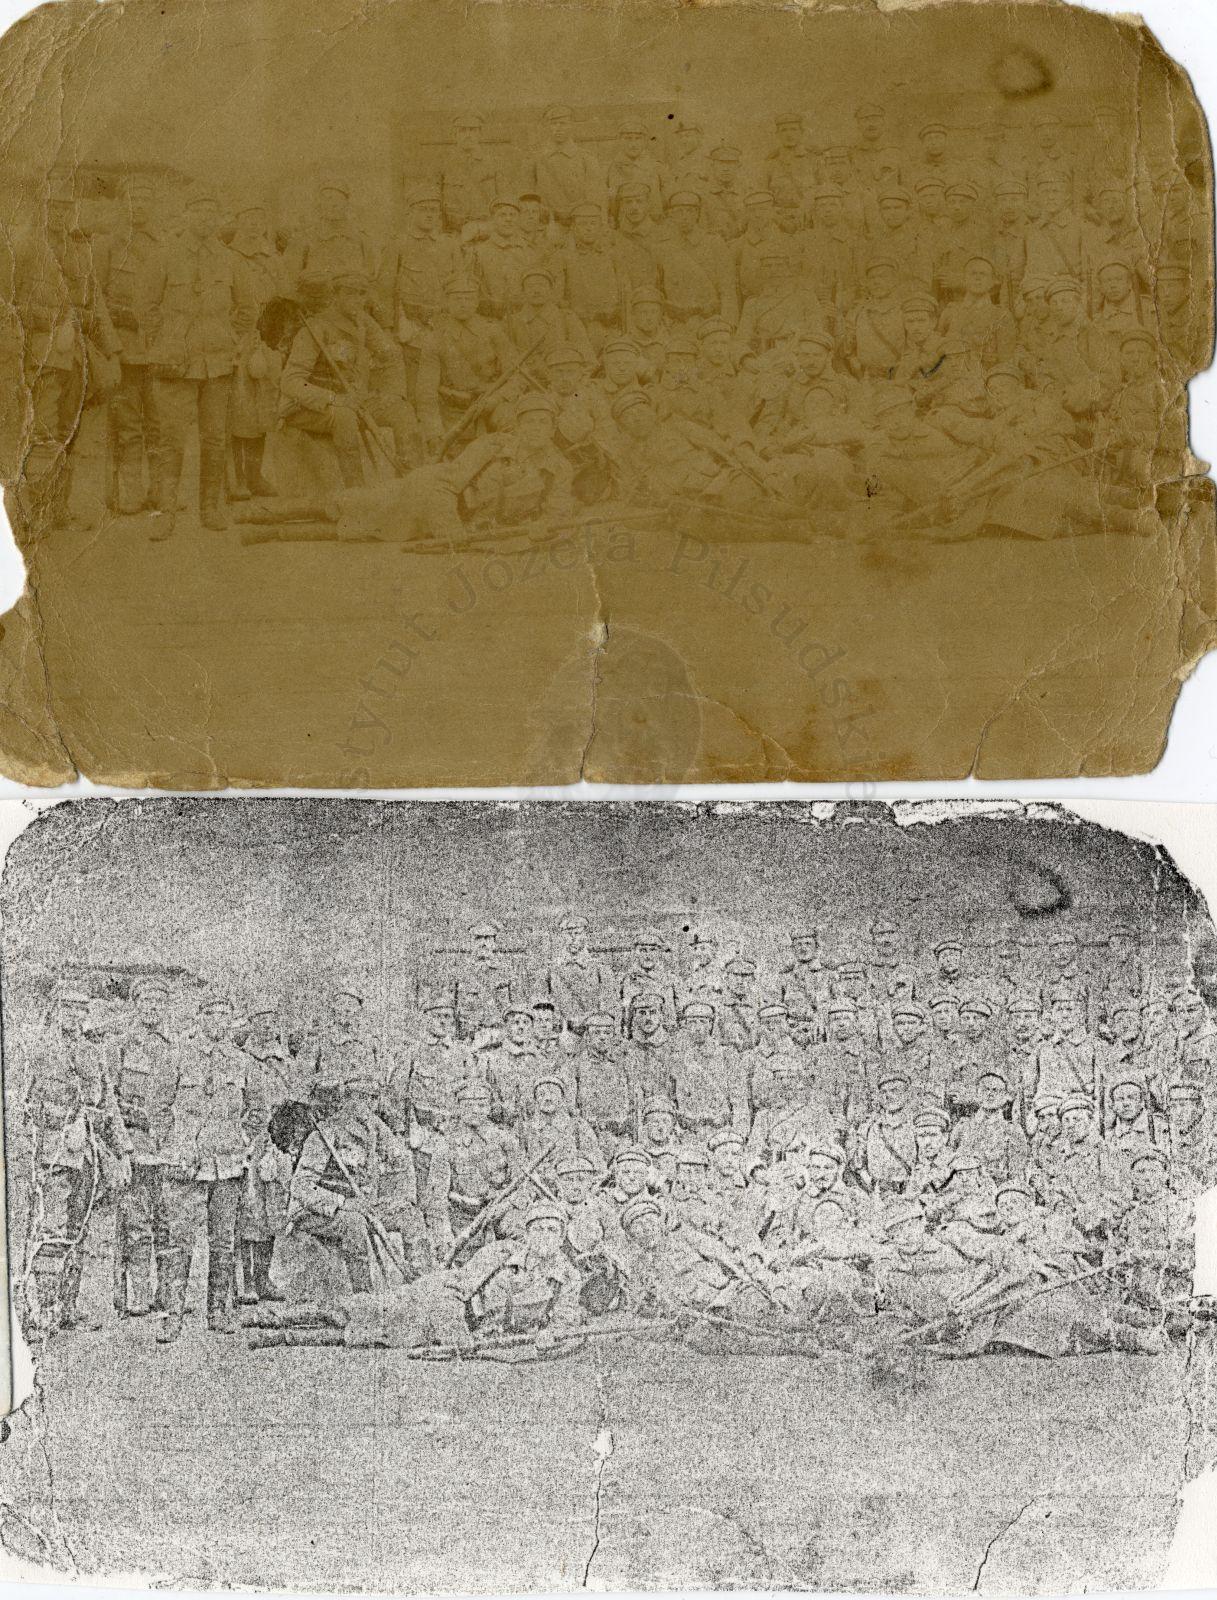 Instytut Józefa Piłsudskiego